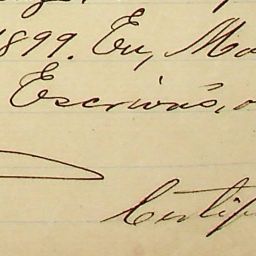 1899. Eu, Ma
Escrivão, o
Certif